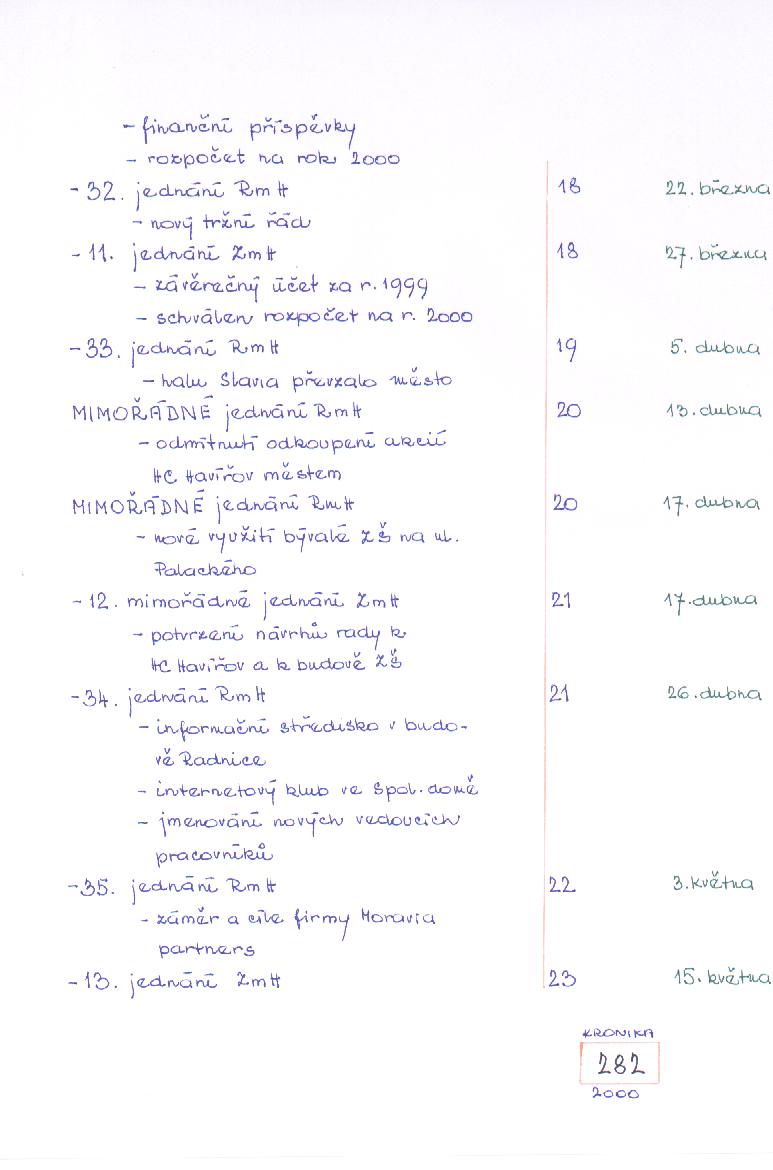 - finanční příspěvky
- rozpočet na rok 2000
- 32. jednání RmH 18 22. března
- nový tržní řád
- 11. jednání ZmH 18 27. března
- závěrečný účet za r. 1999
- schválen rozpočet na r. 2000
- 33. jednání RmH 19 5. dubna
- halu Slavia převzalo město
MIMOŘÁDNÉ jednání RmH 20 13. dubna
- odmítnutí odkoupení akcií
HC Havířov městem
MIMOŘÁDNÉ jednání RmH 20 17. dubna
- nové využití bývalé ZŠ na ul.
Palackého
- 12. mimořádné jednání ZmH 21 17. dubna
- potvrzení návrhů rady k
HC Havířov a k budově ZŠ
- 34. jednání RmH 21 26. dubna
- informační středisko v budo-
vě Radnice
- internetový klub ve Spol. domě
- jmenování nových vedoucích
pracovníků
- 35. jednání RmH 22 3. května
- záměr a cíle firmy Moravia
partners
- 13. jednání ZmH 23 15. května
KRONIKA
282
2000